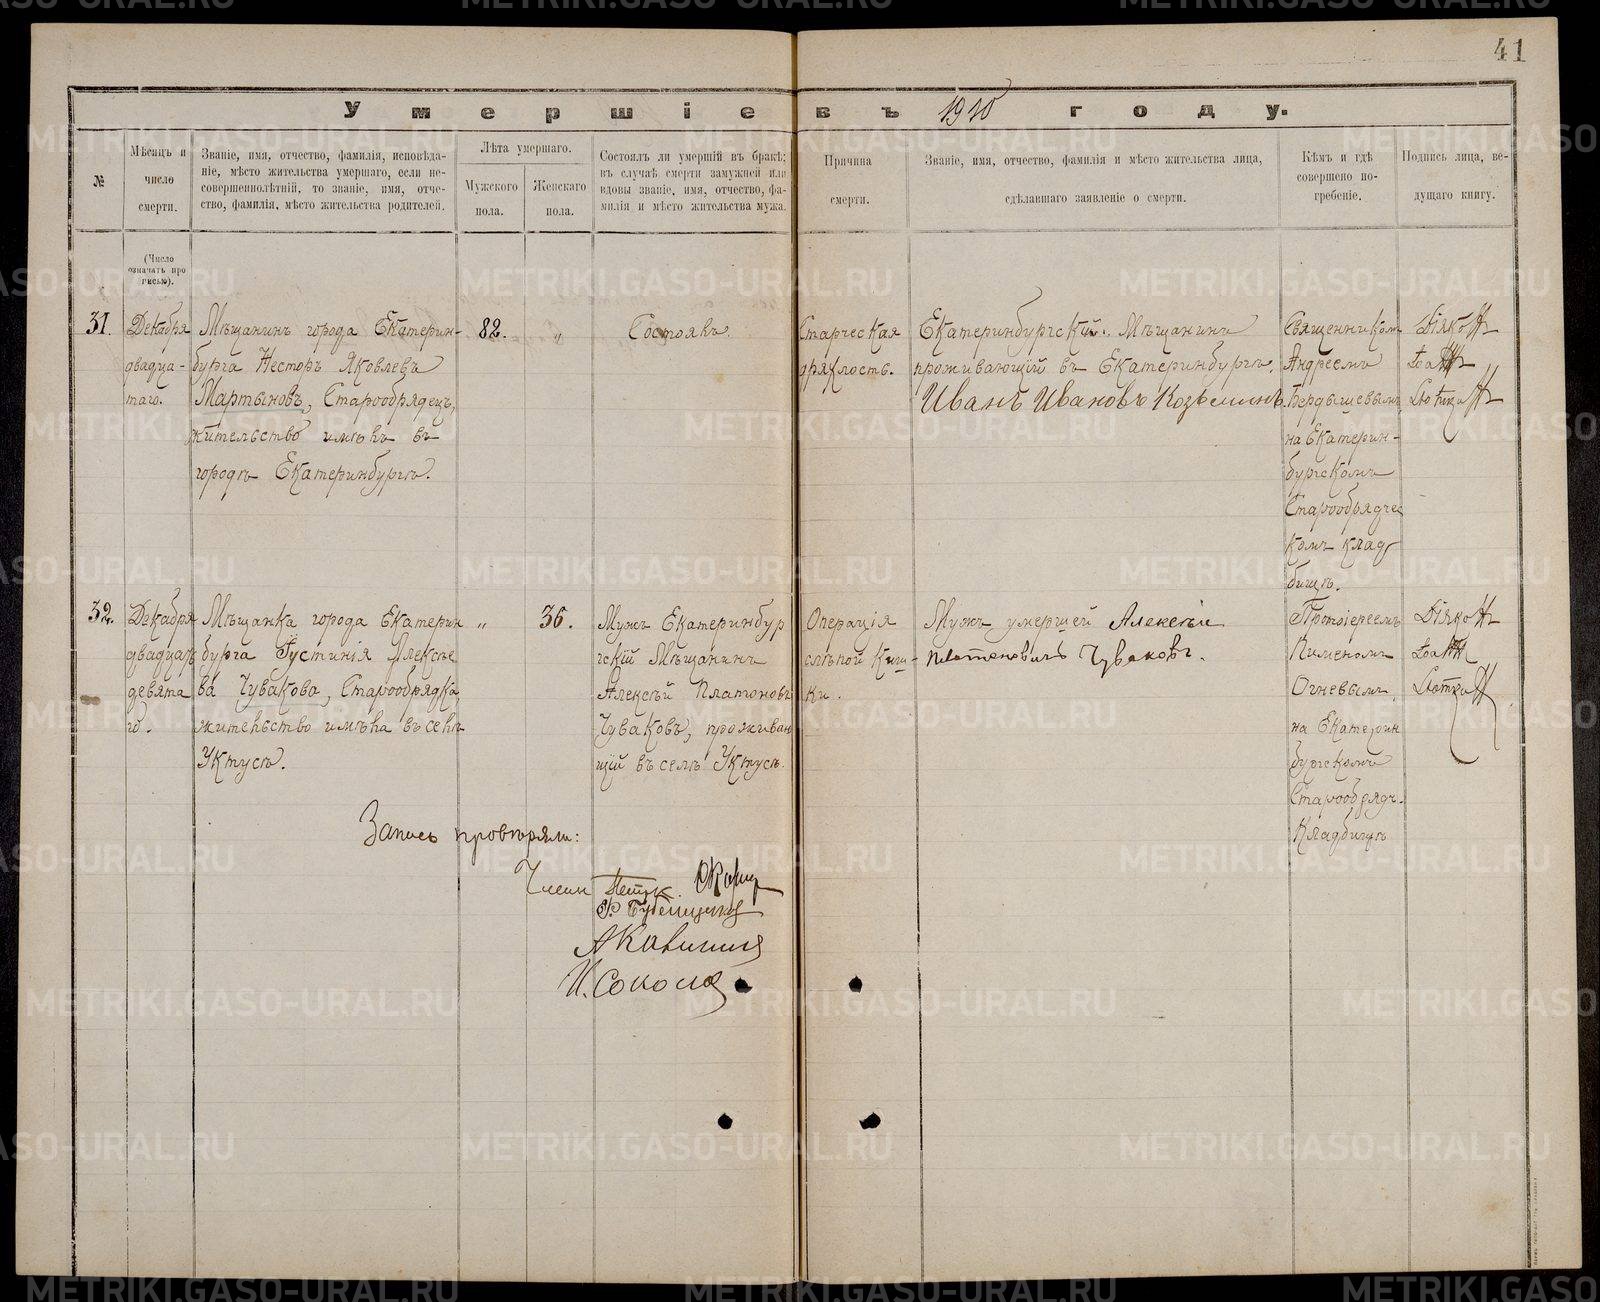 41
Умершіе въ 1910 году.
№
Мѣсяцъ и
число
смерти.
Званіе, имя, отчество, фамилія, исповѣда-
ніе, мѣсто жительства умершаго, если не-
совершеннолѣтній, то званіе, имя, отче-
ство, фамилія, мѣсто жительства родителей.
Лѣта умершаго.
Мужского
пола.
Женскаго
пола.
Состоялъ ли умершій въ бракѣ;
въ случаѣ смерти замужней или
вдовы званіе, имя, отчество, фа-
милія и мѣсто жительства мужа.
Причина
смерти.
Званіе, имя, отчество, фамилія и мѣсто жительства лица,
сдѣлавшаго заявленіе о смерти.
Кѣмъ и гдѣ
совершено по-
гребеніе.
Подпись лица, ве-
дущаго книгу.
(Число
означать про
писью).
31.
Декабря
двадца-
таго.
Мѣщанинъ города Екатерин-
бурга Несторъ Яковлевъ
Мартыновъ, Старообрядецъ,
жительство имѣлъ въ
городѣ Екатеринбургѣ.
82.
"
Состоялъ.
Старческая
дряхлость.
Екатеринбургскій Мѣщанинъ
проживающій въ Екатеринбургѣ,
Иванъ Ивановъ Козьминъ.
Священникомъ
Андреемъ
Бердышевымъ
на Екатерин-
бургскомъ
Старообрядчес
комъ клад
бищѣ.
32.
Декабря
двадцать
девята
го.
Мѣщанка города Екатерин
бурга Іустинія Алексѣе
ва Чувакова, Старообрядка,
жительство имѣла въ селѣ
Уктусѣ.
"
36.
Мужъ Екатеринбур
гскій Мѣщанинъ
Алексѣй Платоновъ
Чуваковъ, проживаю
щій въ селѣ Уктусѣ.
Операція
слѣпой Киш-
ки.
Мужъ умершей Алексѣй
Платоновичъ Чуваковъ.
Протоіереемъ
Пименомъ
Огневымъ
на Екатерин
бургскомъ
Старообрядч.
Кладбищѣ
Запись провѣряли:
Члены
А Кавинин
И. Соколов
METRIKI.GASO-URAL.RU